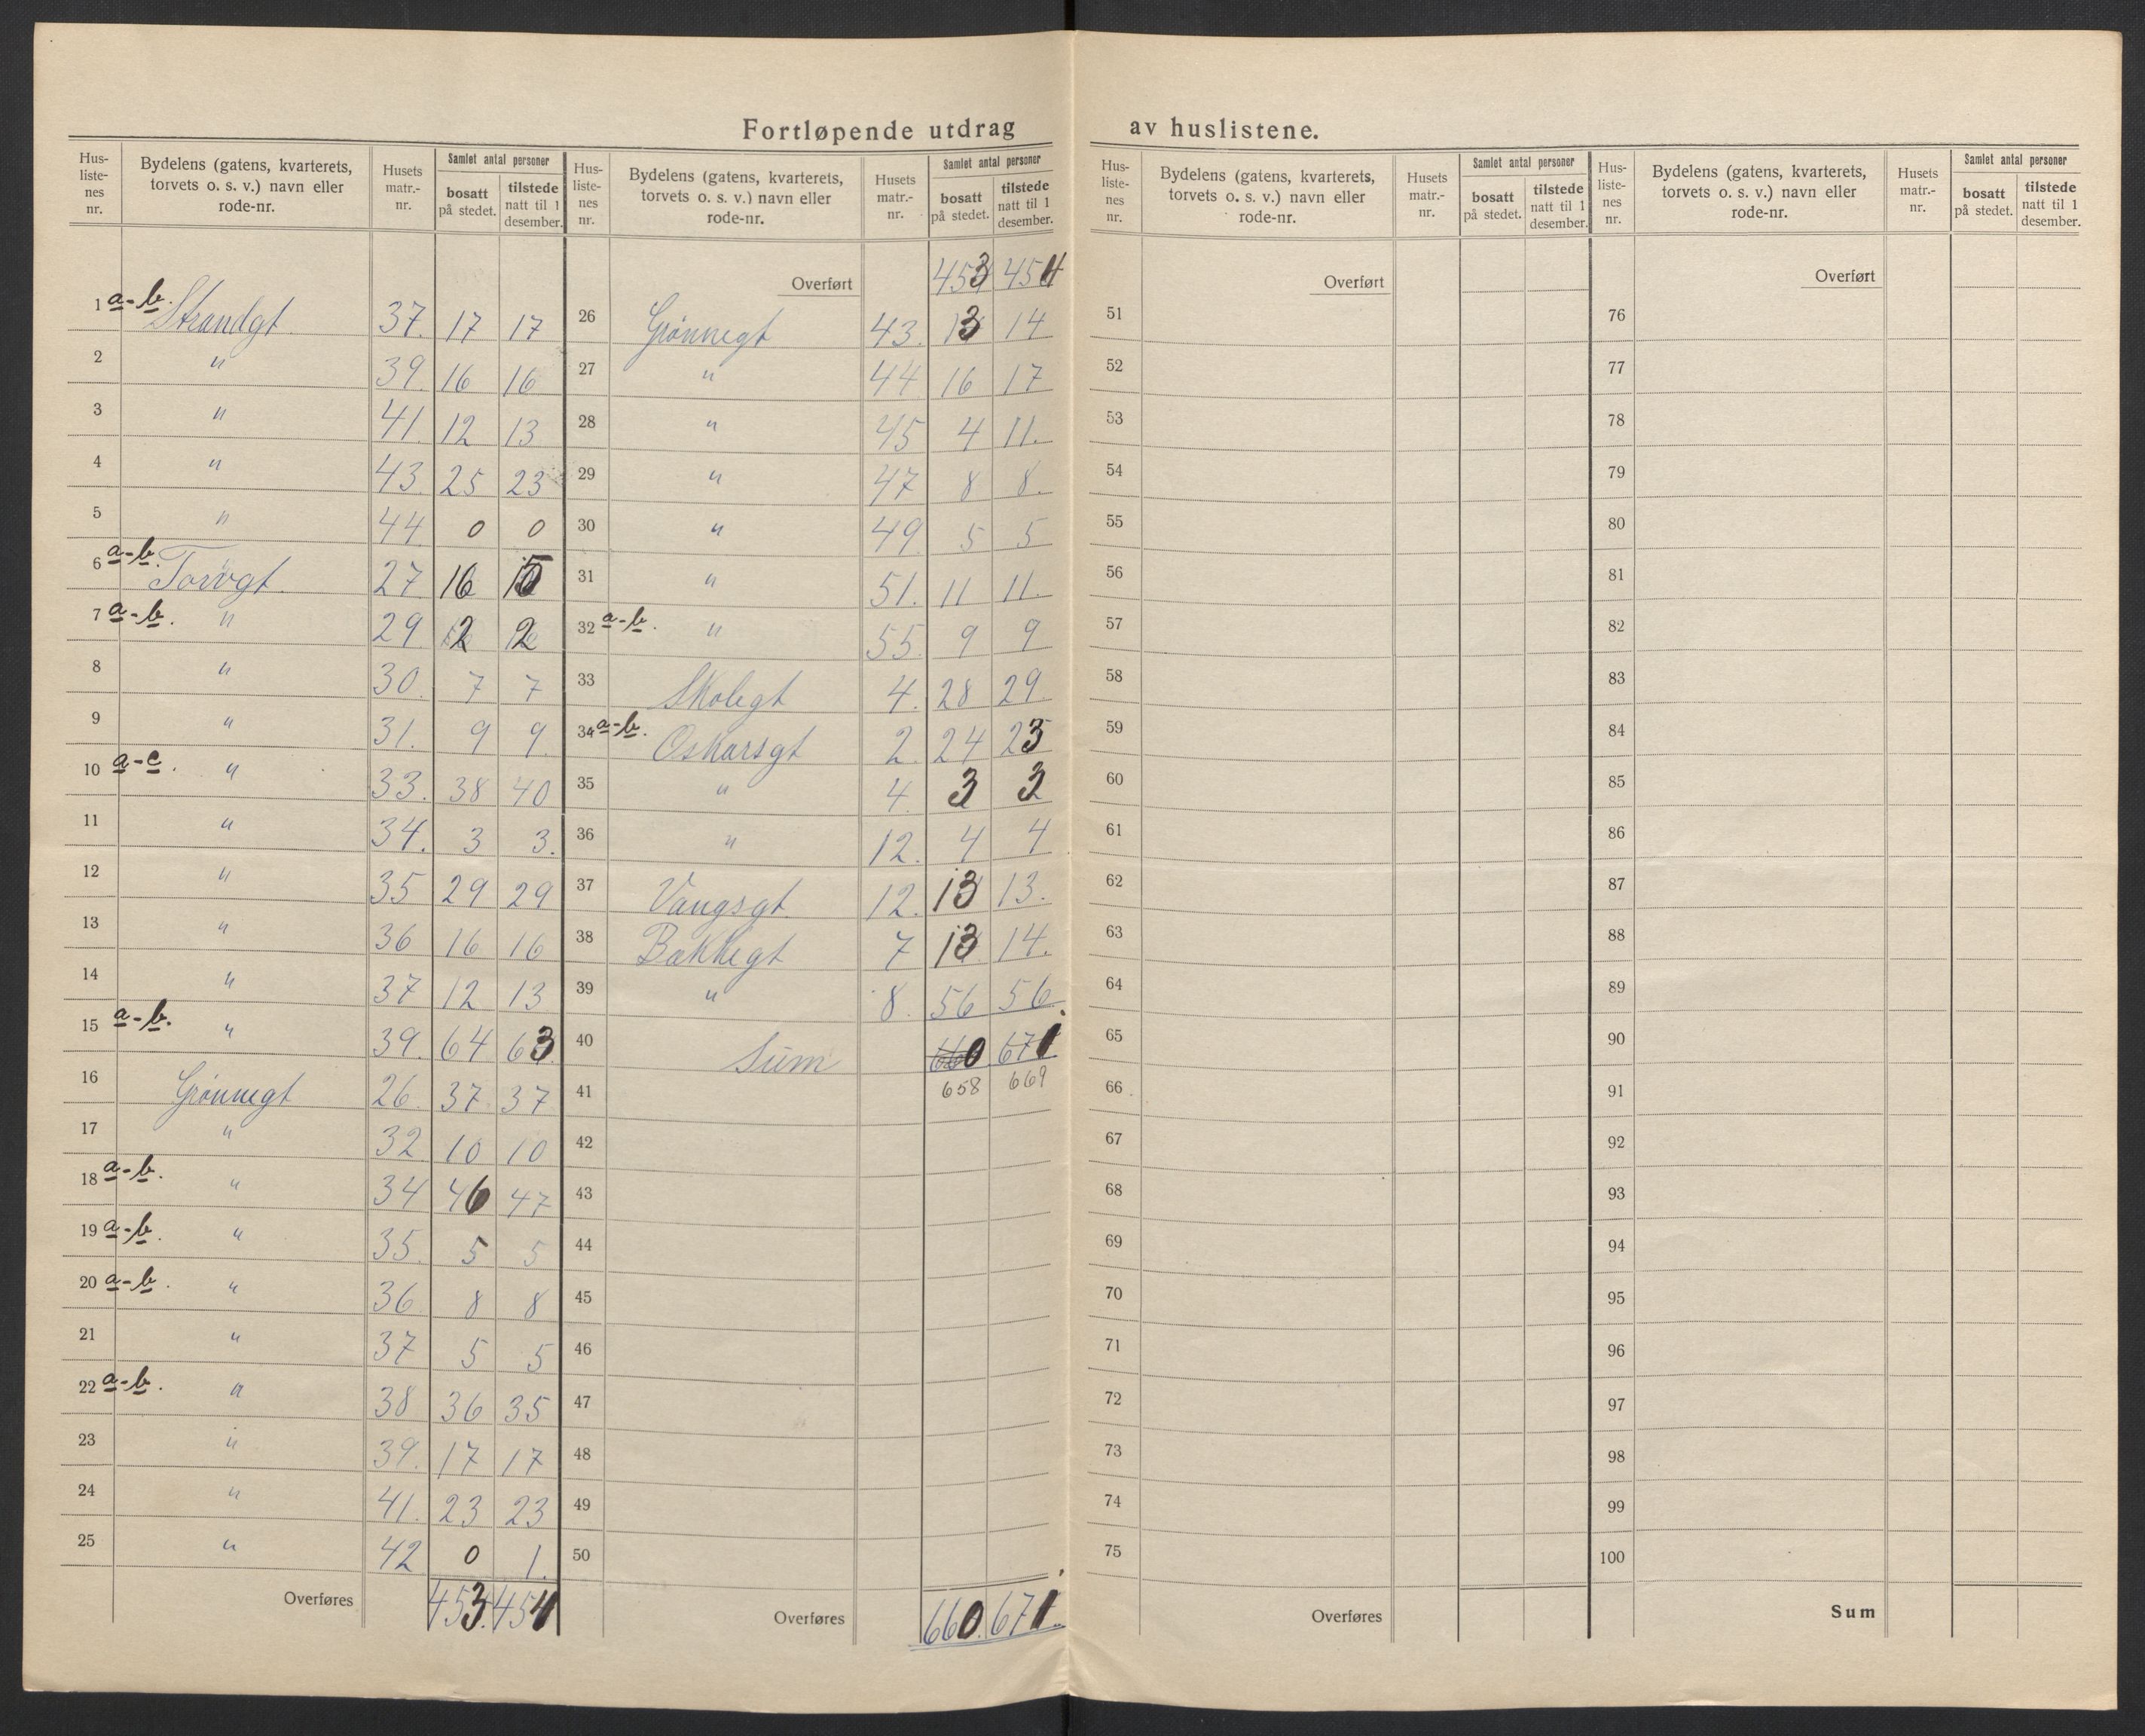 Fortløpende utdrag av huslistene.
Hus-listenes nr. | Bydelens (gatens, kvarterets, torvets o. s. v.) navn eller rode-nr. | Husets matr.-nr. | Samlet antal personer | bosatt på stedet. | tilstede natt til 1 desember.
1 a-b. Strandgt. 37. 17 17
2 " 39. 16 16
3 " 41. 12 13
4 " 43. 25 23
5 " 44. 0 0
6 a-b. Torvgt. 27. 16 15
7 a-b. " 29 12 12
8 " 30. 7 7
9 " 31. 9 9.
10 a-c. " 33. 38 40
11 " 34. 3 3.
12 " 35 29 29
13 " 36 16 16
14 " 37 12 13
15 a-b. " 39. 64 63
16 Grønnegt 26. 37 37
17 " 32 10 10
18 a-b. " 34 46 47
19 a-b. " 35. 5 5
20 a-b. " 36 8 8
21 " 37 5 5
22 a-b. " 38 36 35
23 " 39. 17 17
24 " 41. 23 23
25 " 42 0 1.
Overføres 453. 454
Hus-listenes nr. | Bydelens (gatens, kvarterets, torvets o. s. v.) navn eller rode-nr. | Husets matr.-nr. | Samlet antal personer | bosatt på stedet. | tilstede natt til 1 desember.
Overført 453 454
26 Grønnegt 43. 13 14
27 " 44 16 17
28 " 45 4 11.
29 " 47 8 8.
30 " 49 5 5
31 " 51. 11 11.
32 a-b. " 55. 9 9
33 Skolegt 4. 28 29
34 a-b. Oskarsgt 2. 24 23
35 " 4. 3 3
36 " 12. 4 4
37 Vangsgt. 12. 13 13.
38 Bakkegt 7 13 14.
39 " 8. 56 56.
40 Sum 660 671
41 658 669
42
43
44
45
46
47
48
49
50
Overføres 660. 671.
Hus-listenes nr. | Bydelens (gatens, kvarterets, torvets o. s. v.) navn eller rode-nr. | Husets matr.-nr. | Samlet antal personer | bosatt på stedet. | tilstede natt til 1 desember.
Overført
51
52
53
54
55
56
57
58
59
60
61
62
63
64
65
66
67
68
69
70
71
72
73
74
75
Overføres
Hus-listenes nr. | Bydelens (gatens, kvarterets, torvets o. s. v.) navn eller rode-nr. | Husets matr.-nr. | Samlet antal personer | bosatt på stedet. | tilstede natt til 1 desember.
Overført
76
77
78
79
80
81
82
83
84
85
86
87
88
89
90
91
92
93
94
95
96
97
98
99
100
Sum